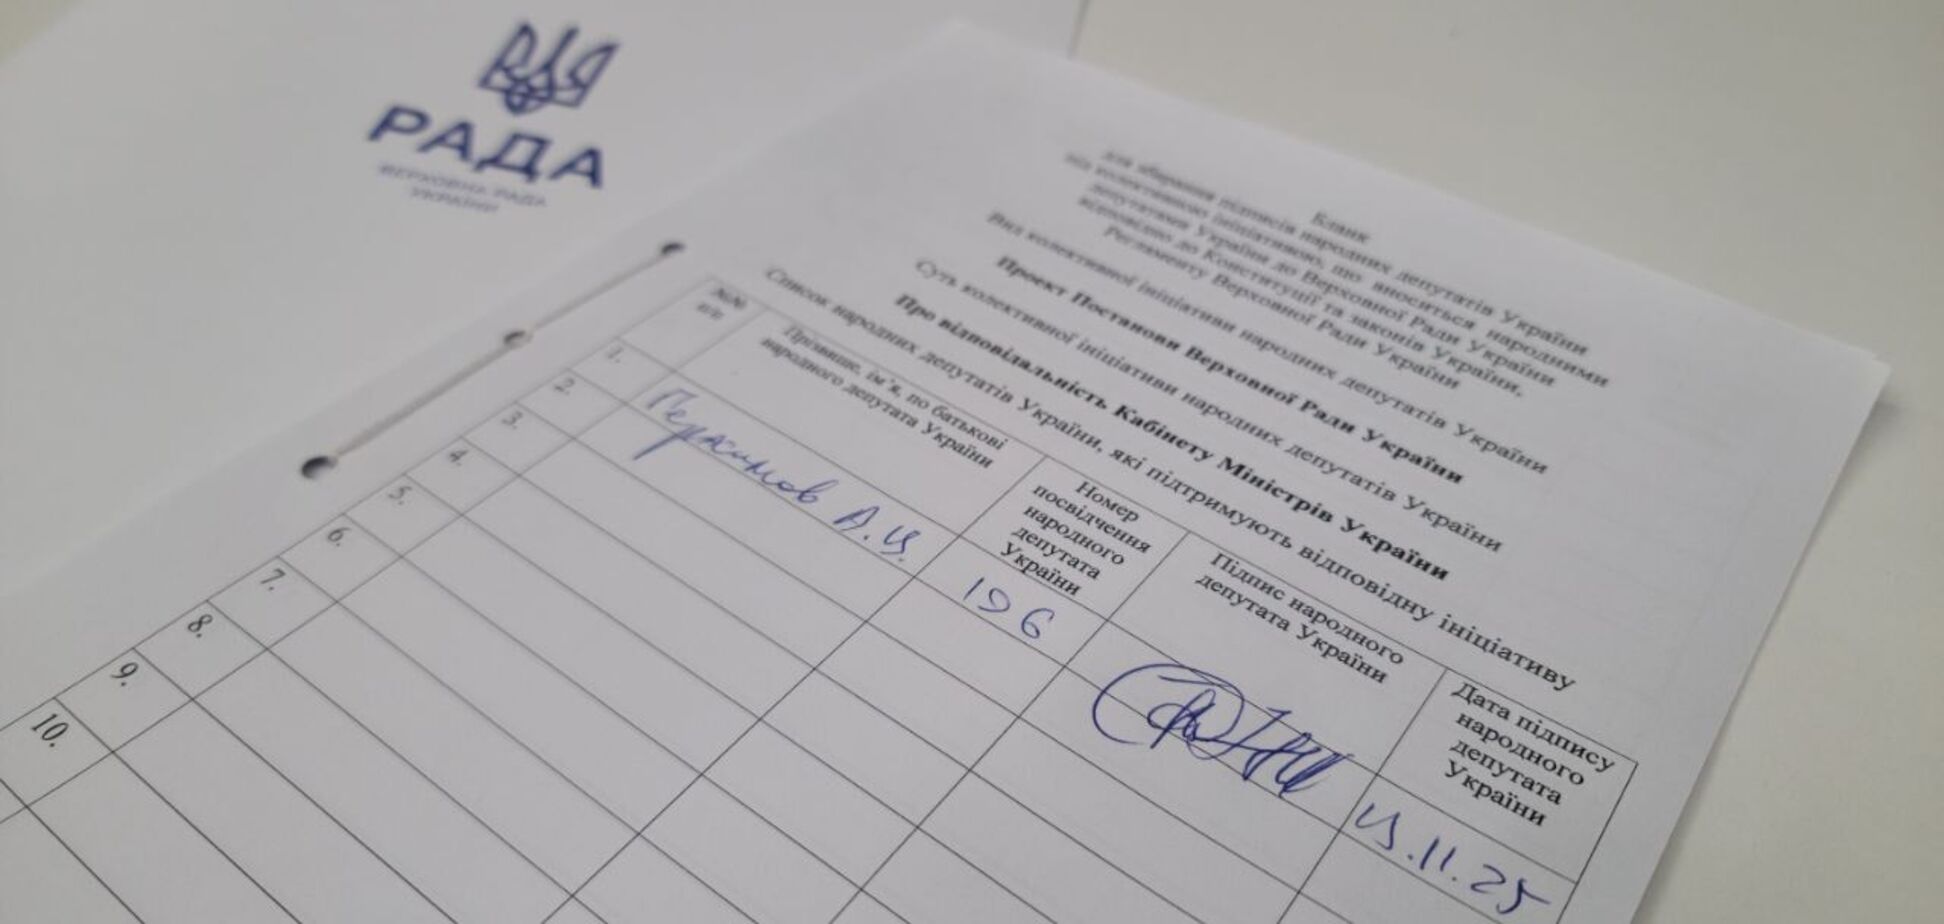 РАДА
ВЕРХОВНА РАДА
УКРАЇНИ
Бланк
для збирання підписів народних депутатів України
під колективною ініціативою, що вноситься народними
депутатами України до Верховної Ради України
відповідно до Конституції та законів України,
Регламенту Верховної Ради України
Вид колективної ініціативи народних депутатів України
Проект Постанови Верховної Ради України
Суть колективної ініціативи народних депутатів України
Про відповідальність Кабінету Міністрів України
Список народних депутатів України, які підтримують відповідну ініціативу
№№
п/п
Прізвище, ім’я, по батькові
народного депутата України
Номер
посвідчення
народного
депутата
України
Підпис народного
депутата України
Дата підпису
народного
депутата
України
1.
А.
.11.25
2.
3.
4.
5.
6.
7.
8.
9.
10.